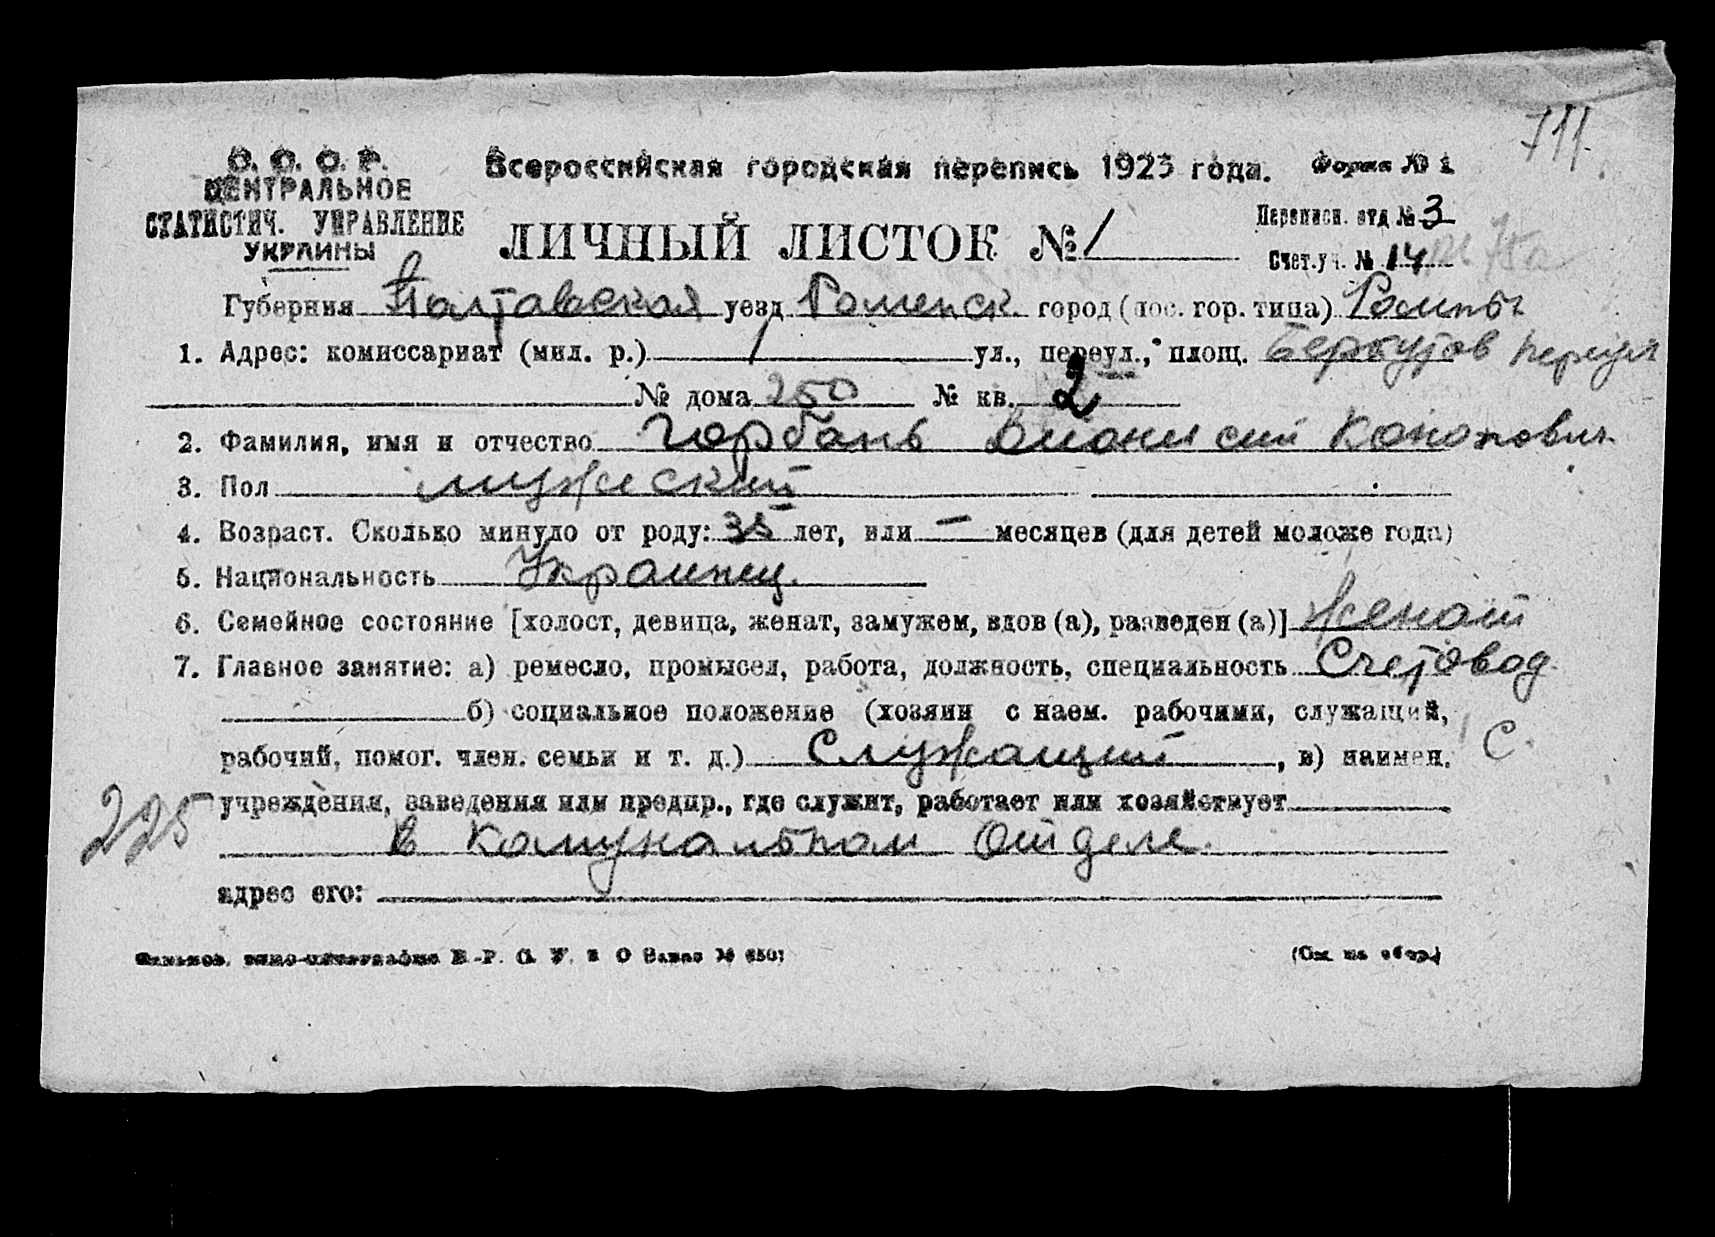 711.
С. С. С. Р.
ЦЕНТРАЛЬНОЕ
СТАТИСТИЧ. УПРАВЛЕНИЕ
УКРАИНЫ
Всероссийская городская перепись 1923 года. Форма № 1
Переписн. отд № 3
ЛИЧНЫЙ ЛИСТОК № 1
Счет.уч. № 14
Губерния Полтавская уезд Роменск. город (пос. гор. типа) Ромны
1. Адрес: комиссариат (мил. р.) 1 ул., переул., площ. Беркутов переул
№ дома 250 № кв. 2
2. Фамилия, имя и отчество Горбань Дионисий Кононович
3. Пол мужеский
4. Возраст. Сколько минуло от роду: 35 лет, или — месяцев (для детей моложе года)
5. Национальность Украинец.
6. Семейное состояние [холост, девица, женат, замужем, вдов (а), разведен (а)] женат
7. Главное занятие: а) ремесло, промысел, работа, должность, специальность Счетовод.
б) социальное положение (хозяин с наем. рабочими, служащий,
рабочий, помог. член. семьи и т. д.) Служащий, в) наимен. С.
225 учреждения, заведения или предпр., где служит, работает или хозяйствует
в комунальном отделе.
адрес его:
Заказ № 6501 (См. на обор.)